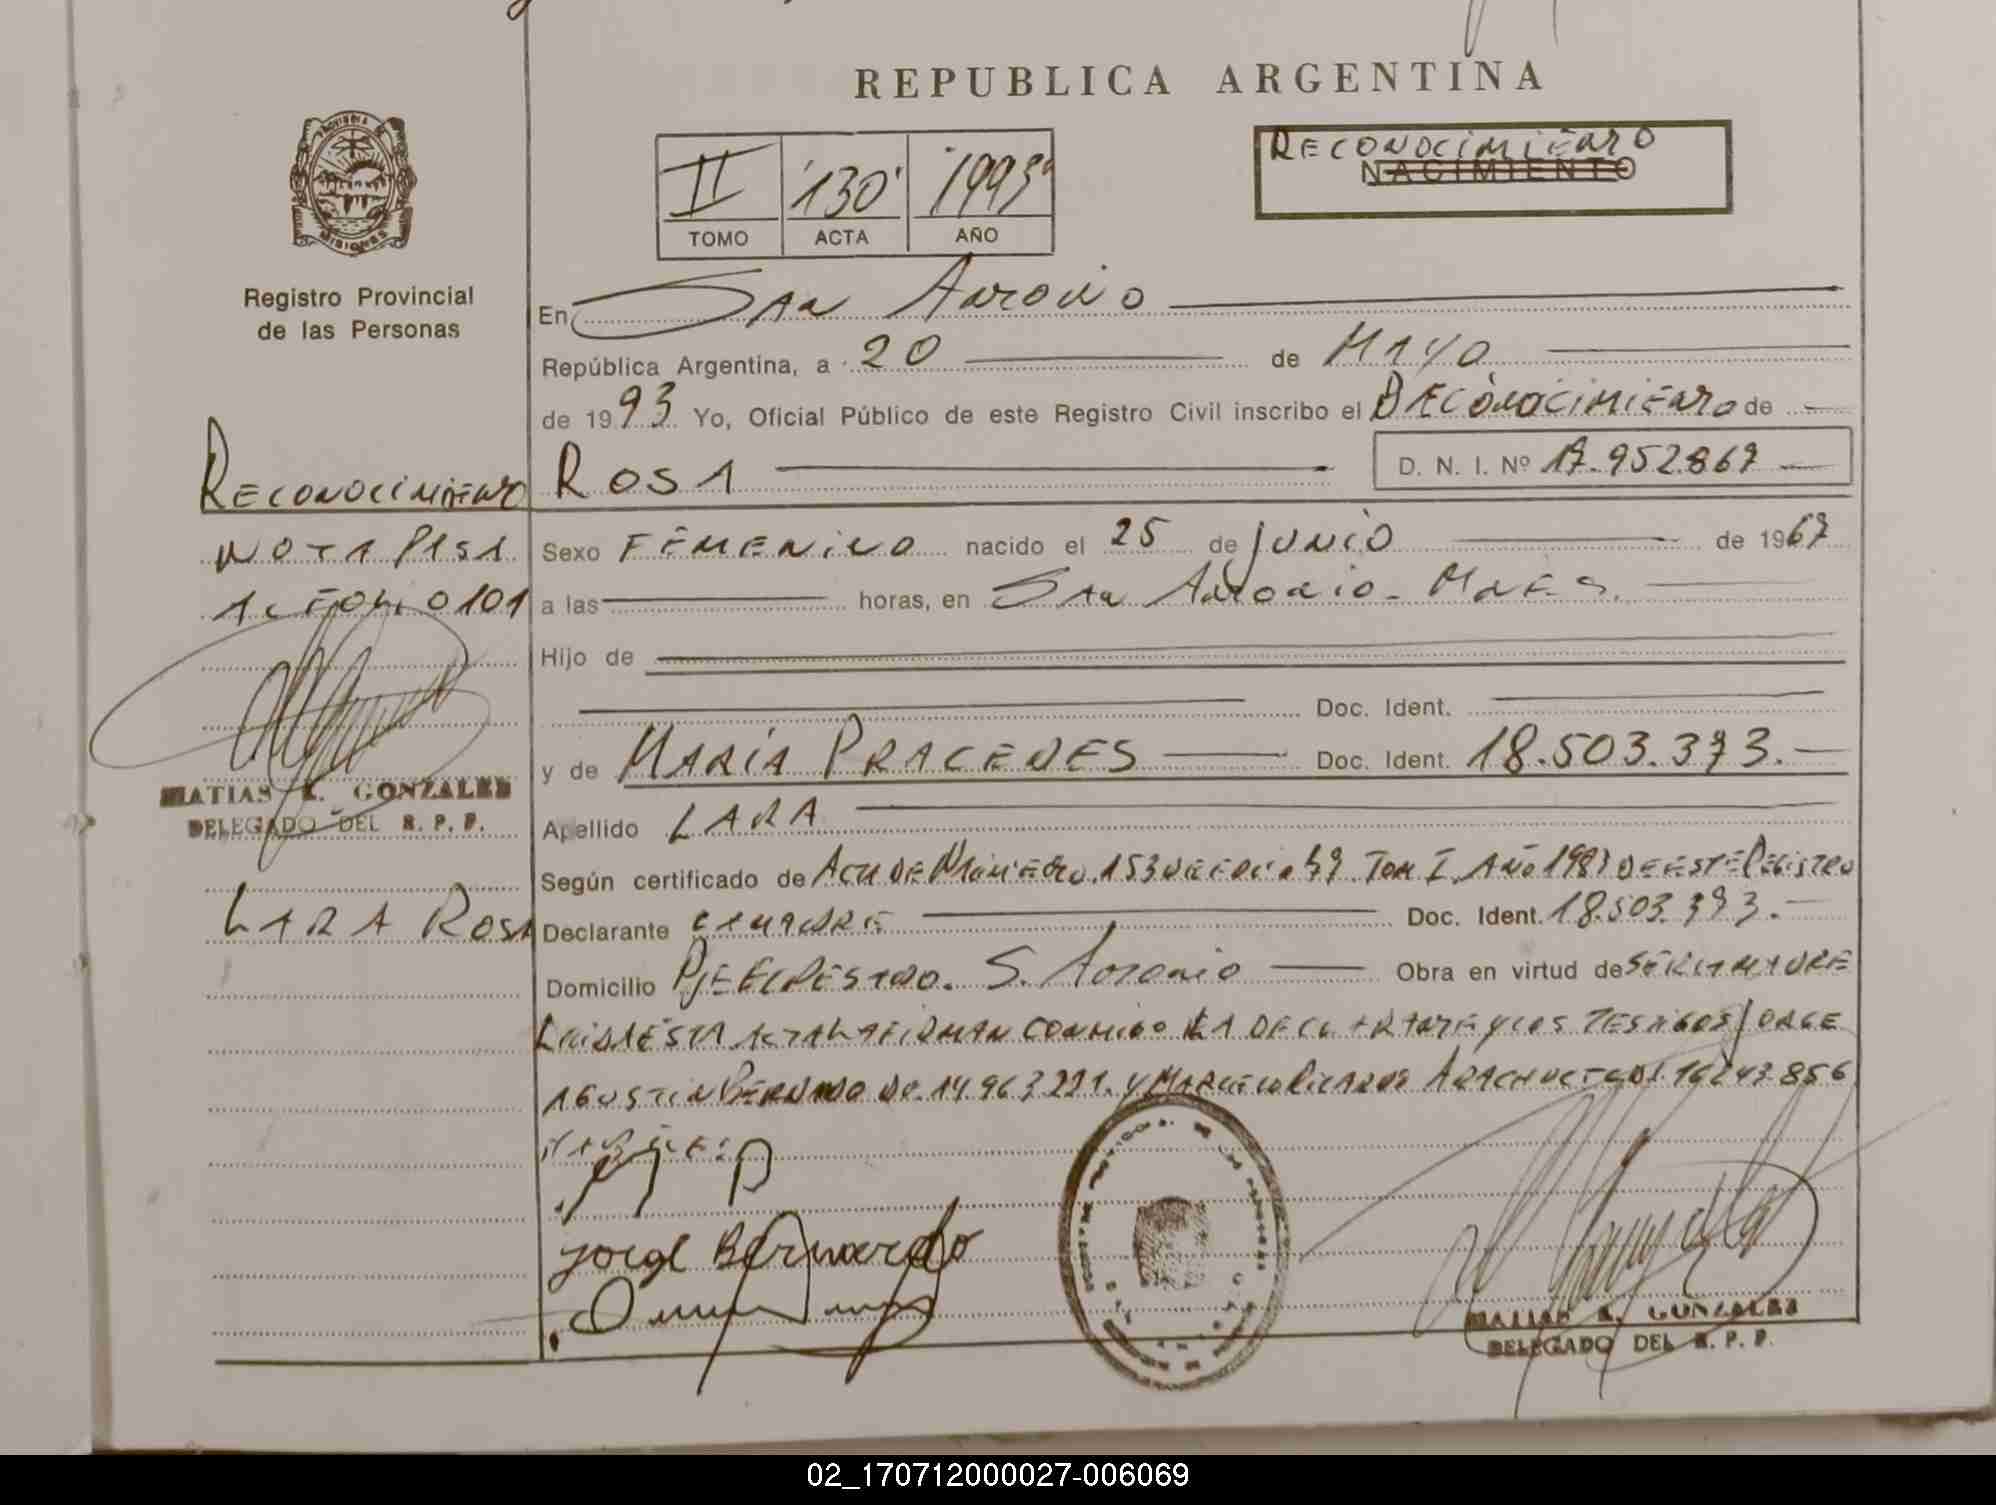 REPUBLICA ARGENTINA
PROVINCIA DE
MISIONES
Registro Provincial
de las Personas
II '130' '1993'
TOMO ACTA AÑO
RECONOCIMIENTO
NACIMIENTO
En San Antonio
República Argentina, a 20 de MAYO
de 1993 Yo, Oficial Público de este Registro Civil inscribo el RECONOCIMIENTO de
ROSA D. N. I. Nº 17.952.867
Sexo FEMENINO nacido el 25 de JUNIO de 1967
a las horas, en San Antonio - Mnes.
Hijo de
Doc. Ident.
y de MARÍA PRACEDES Doc. Ident. 18.503.373.
Apellido LARA
Según certificado de ACTA DE 153 TOM I AÑO DE ESTE REGISTRO
Declarante LA MADRE Doc. Ident. 18.503.373.
Domicilio S. Antonio Obra en virtud de SER LA MADRE
LEIDA ESTA ACTA LA FIRMAN CONMIGO LA DECLARANTE Y LOS TESTIGOS JORGE
AGUSTIN BERNARDO 14.963.221. Y MARCELO RICARDO 16243.856
Jorge Bernardo
MATIAS R. GONZALEZ
DELEGADO DEL R. P. P.
RECONOCIMIENTO
NOTA PASA
AL FOLIO 101
MATIAS R. GONZALEZ
DELEGADO DEL R. P. P.
LARA ROSA
02_170712000027-006069